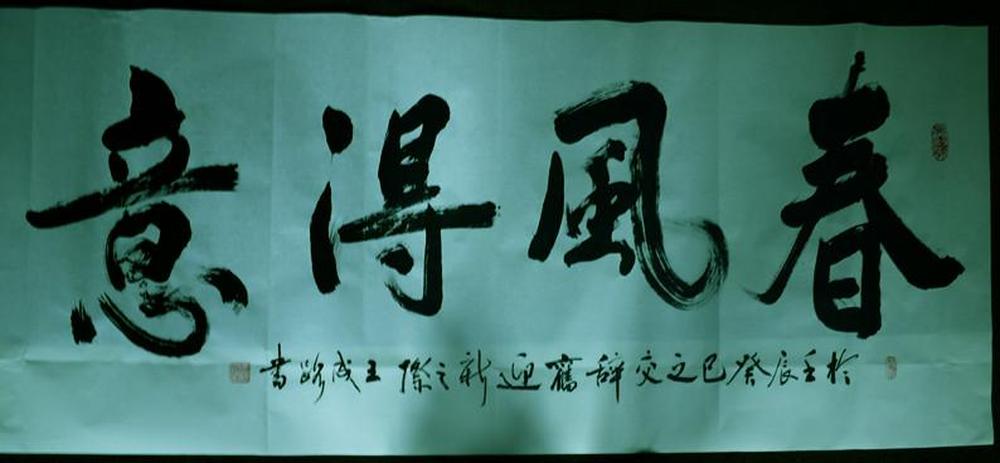 春風得意
於壬辰癸巳之交辞舊迎新之際王成路書